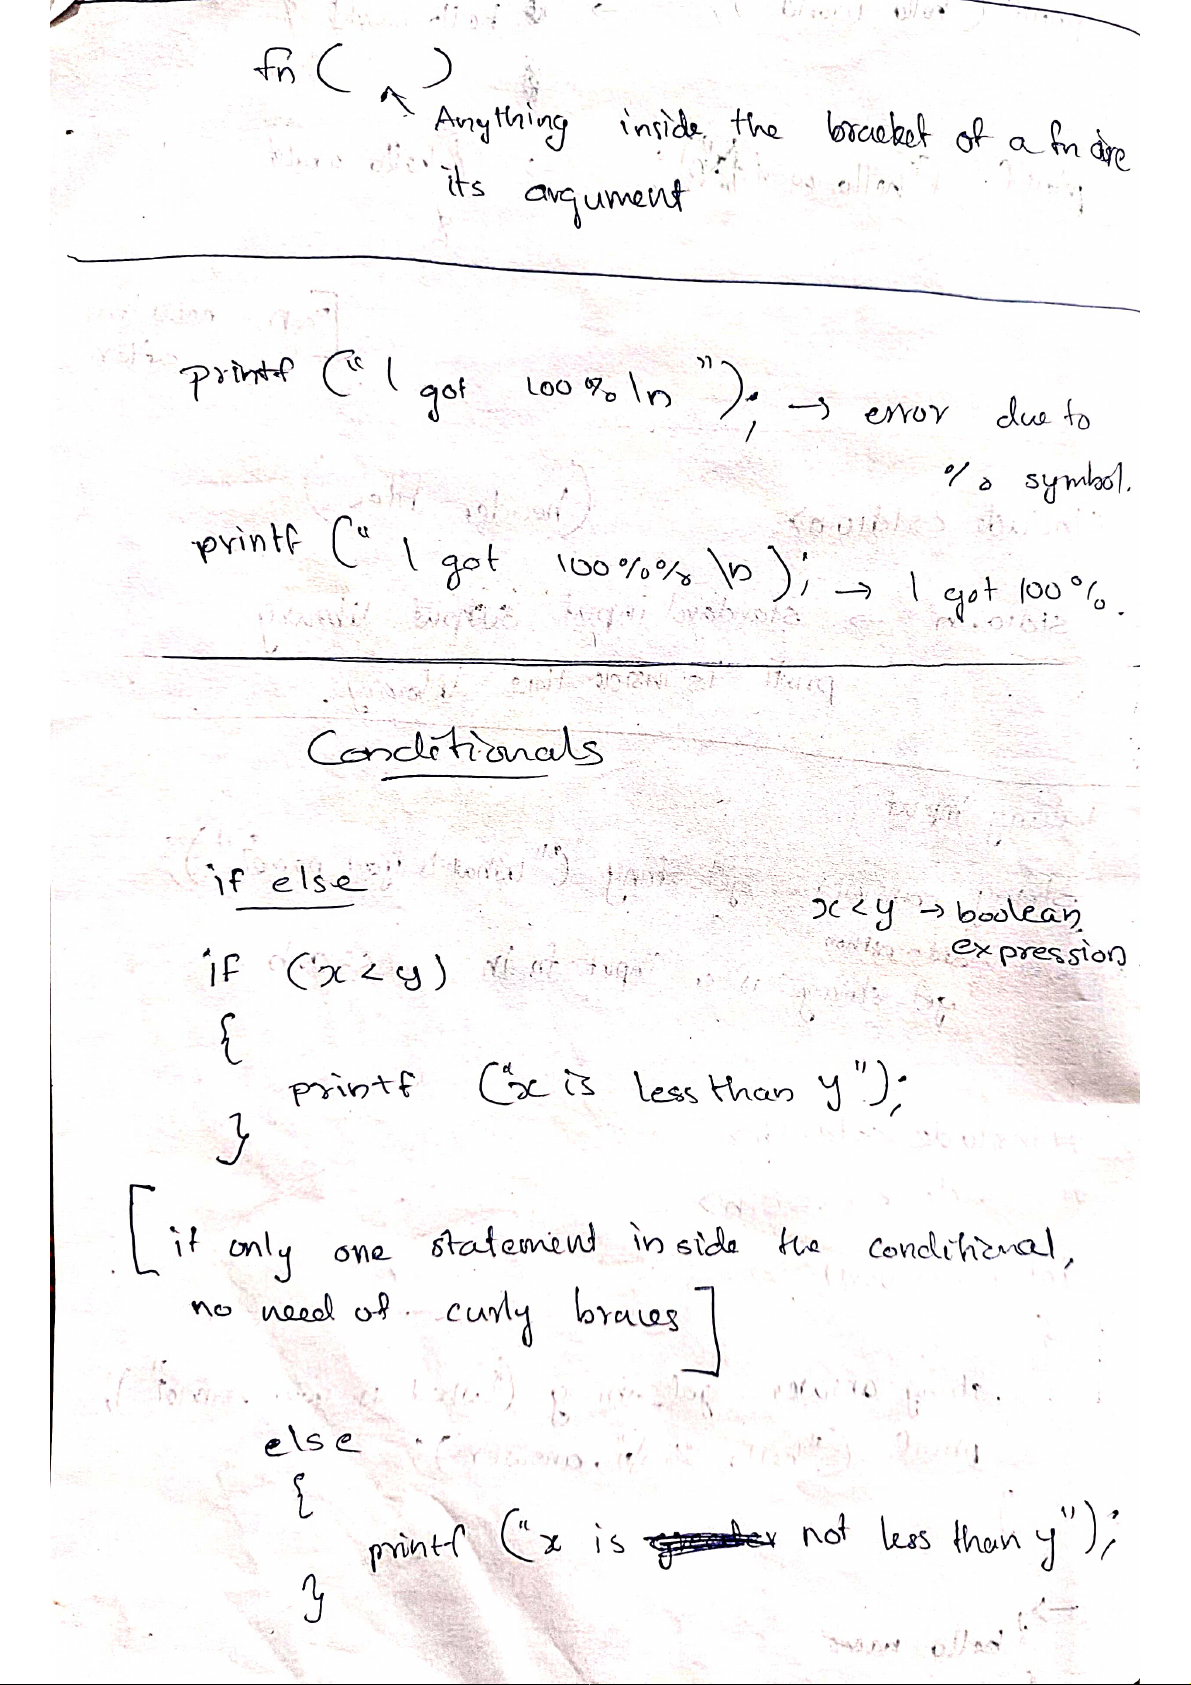 fn ( )
Anything inside the bracket of a fn are
its argument
printf (" I got 100%\n "); → error due to
% symbol.
printf (" I got 100%% \n ); → I got 100%.
Conditionals
if else
x<y → boolean
expression
if (x < y)
{
printf ("x is less than y");
}
[if only one statement inside the conditional,
no need of curly braces]
else
{
printf ("x is greater not less than y");
}